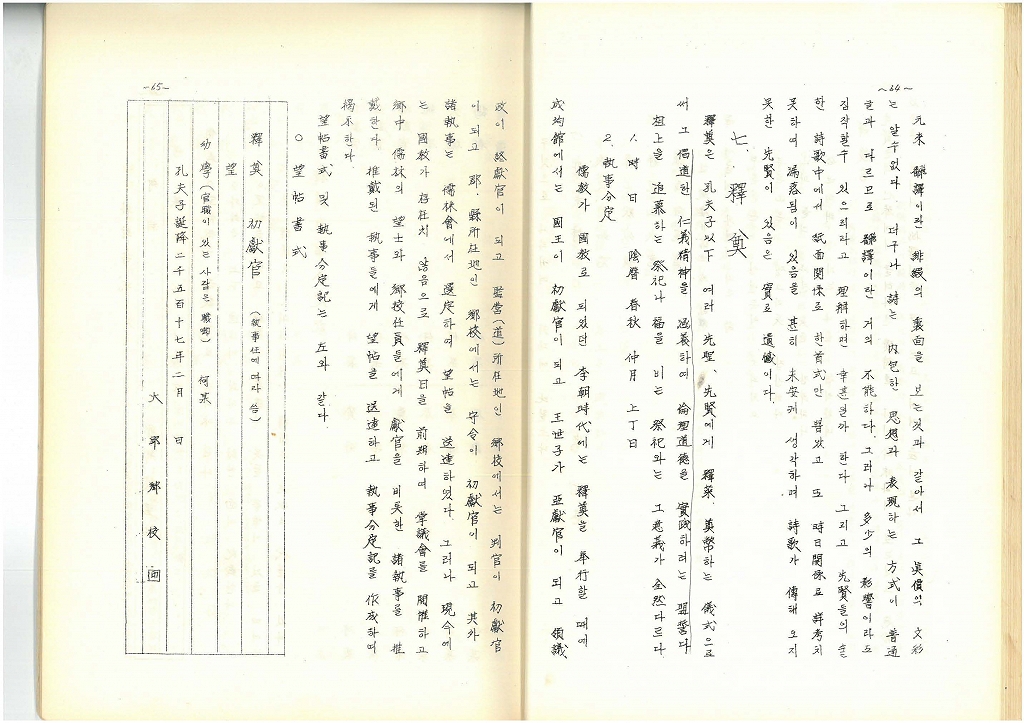 ~64~
元來 飜譯이란 緋緞의 裏面을 보는것과 같아서 그 眞價의 文彩
는 알수없다 더구나 詩는 内包한 思想과 表現하는 方式이 普通
글과 다르므로 飜譯이란 거의 不能하다. 그러나 多少의 影響이라도
짐작할수 있으리라고 理解하면 幸甚될까 한다 그리고 先賢들의 술
한 詩歌中에서 紙面關係로 한首式만 뽑았고 또 時日關係로 詳考치
못하여 漏落됨이 있음을 甚히 未安케 생각하며 詩歌가 傳해 오지
못한 先賢이 있음은 實로 遺憾이다.
七. 釋 奠
釋奠은 孔夫子以下 여러 先聖、先賢에게 釋菜 奠幣하는 儀式으로
써 그 唱道한 仁義精神을 涵養하여 倫理道德을 實踐하려는 盟誓다
祖上을 追慕하는 祭祀나 福을 비는 祭祀와는 그 意義가 全然다르다
1. 時 日 陰曆 春秋 仲月 上丁日
2. 執事分定
儒敎가 國敎로 되었던 李朝時代에는 釋奠을 擧行할 때에
成均館에서는 國王이 初獻官이 되고 王世子가 亞獻官이 되고 領議
政이 終獻官이 되고 監營(道)所在地인 鄕校에서는 判官이 初獻官
이 되고 郡、縣所在地인 鄕校에서는 守令이 初獻官이 되고 其外
諸執事는 儒林會에서 選定하여 望帖을 送達하였다. 그러나 現今에
는 國敎가 存在치 않음으로 釋奠日을 前期하여 掌議會를 開催하고
鄕中 儒林의 望士와 鄕校任員들에게 獻官을 비롯한 諸執事를 推
戴한다. 推戴된 執事들에게 望帖을 送達하고 執事分定記를 作成하여
揭示한다.
望帖書式 및 執事分定記는 左와 같다
○ 望帖書式
釋奠 初獻官 (執事任에 따라 씀)
望
幼學(官職이 있는 사람은 職啣) 何某
孔夫子誕降 二千五百十七年 二月 日
大 邱 鄕 校 囙
~65~